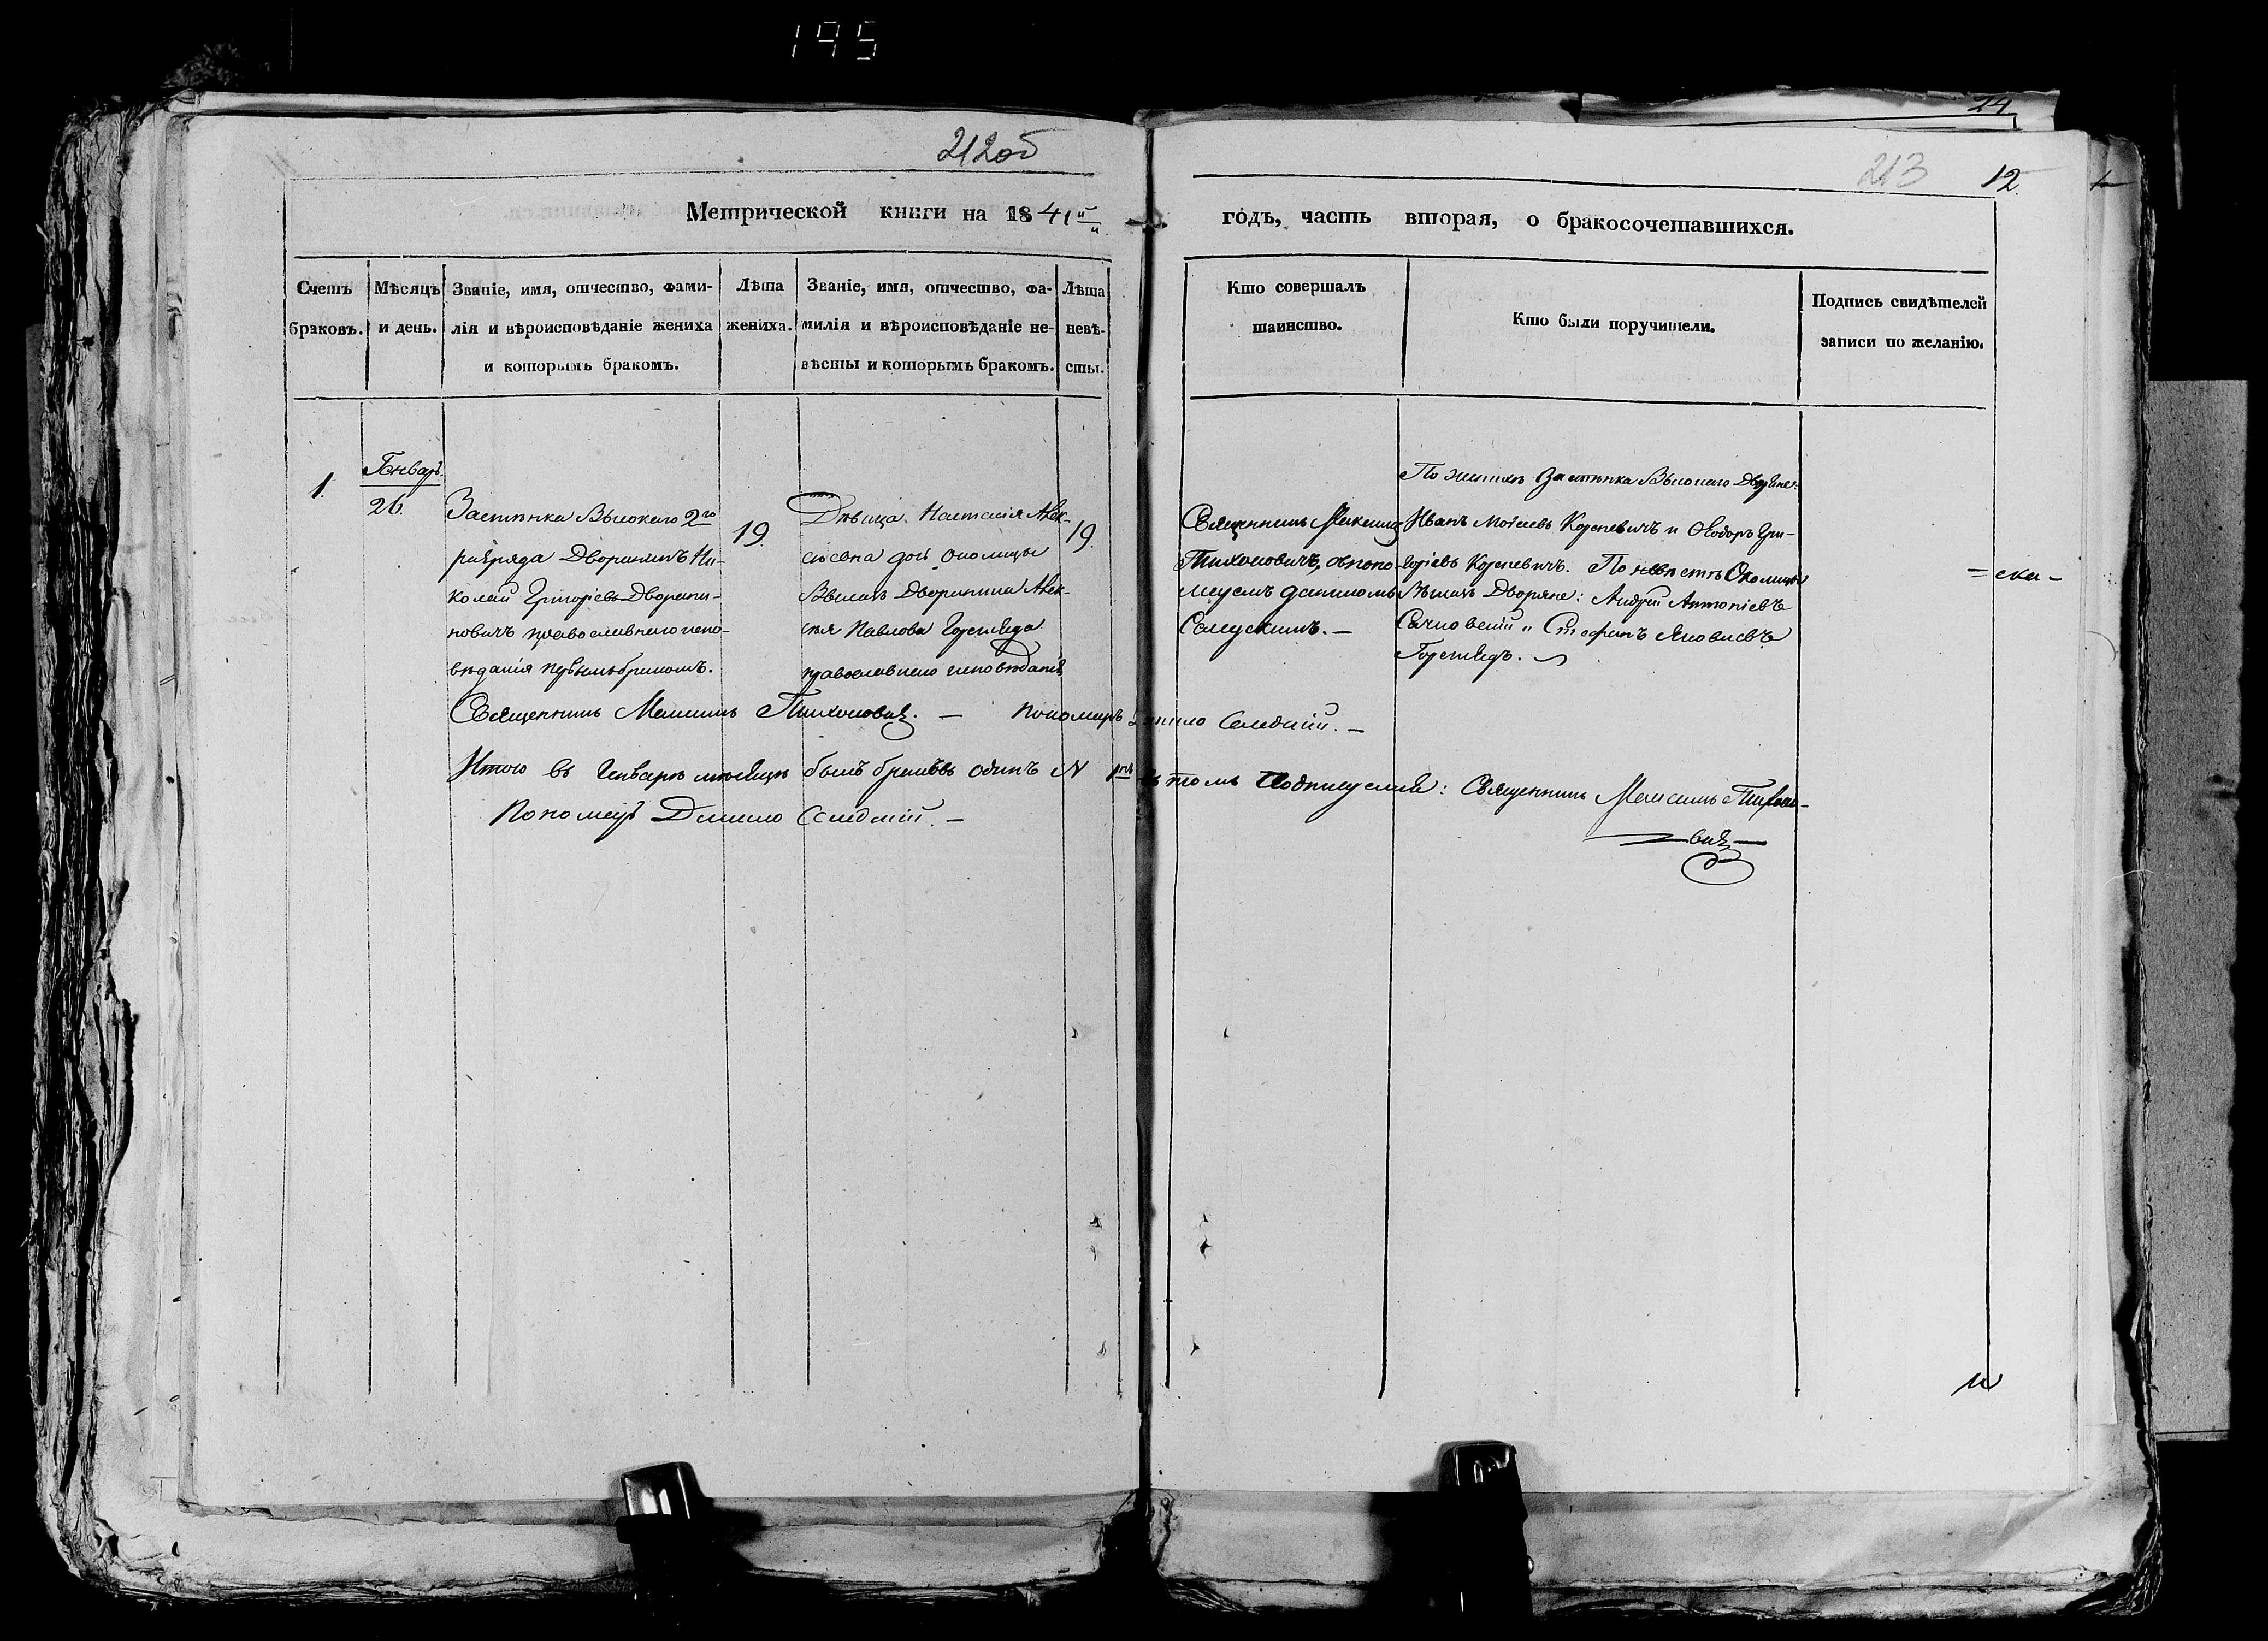 195
24
212об
213
12.
Метрической книги на 1841й
годъ, часть вторая, о бракосочетавшихся.
Счетъ
браковъ.
Мѣсяцъ
и день.
Званіе, имя, отчество, фами-
лія и вѣроисповѣданіе жениха
и которымъ бракомъ.
Лѣта
жениха.
Званіе, имя, отчество, фа-
милія и вѣроисповѣданіе не-
вѣсты и которымъ бракомъ.
Лѣта
невѣ-
сты.
Кто совершалъ
таинство.
Кто были поручители.
Подпись свидѣтелей
записи по желанію.
1.
Генварь.
26.
Застѣнка Высокаго 2го
разряда Дворянинъ Ни-
колай Григорьевъ Дворяни-
новичъ православнаго испо-
вѣданія первымъ бракомъ.
19.
Дѣвица Настасія Алек-
сѣевна дочь околицы
Дворянина Алек-
сѣя Павлова
православнаго исповѣданія
19.
Священникъ Максимъ
Тихоновичъ, съ поно-
маремъ
По женихѣ Застѣнка Высокаго Дворяне:
Иванъ Моѵсеевъ Корсевичъ и Ѳеодоръ Гри-
горіевъ Корсевичъ. По невѣстѣ Околицы
Дворяне: Андрей Антоніевъ
и Стефанъ Яковлевъ
= ска -
Священникъ Максимъ Тихоновичъ. — Пономарь
Итого въ Генварѣ мѣсяцѣ былъ браковъ одинъ N 1нъ въ томъ подписуемся: Священникъ Максимъ Тихоно-
вичъ
Пономарь